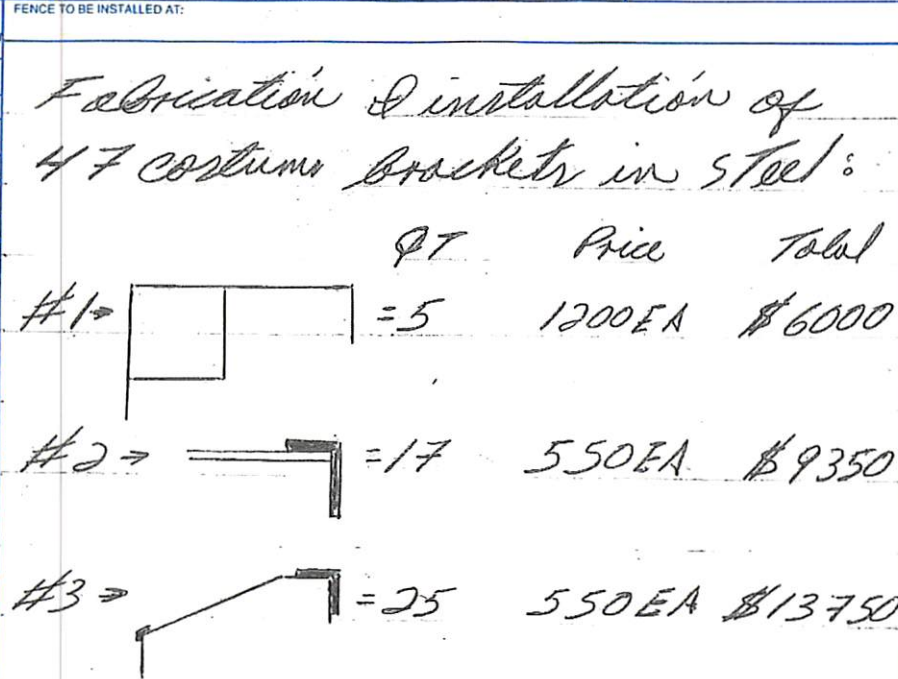 FENCE TO BE INSTALLED AT:
Fabrication & installation of
47 costume brackets in steel:
QT Price Total
#1→ =5 1200EA $6000
#2→ =17 550EA $9350
#3→ =25 550EA $13750